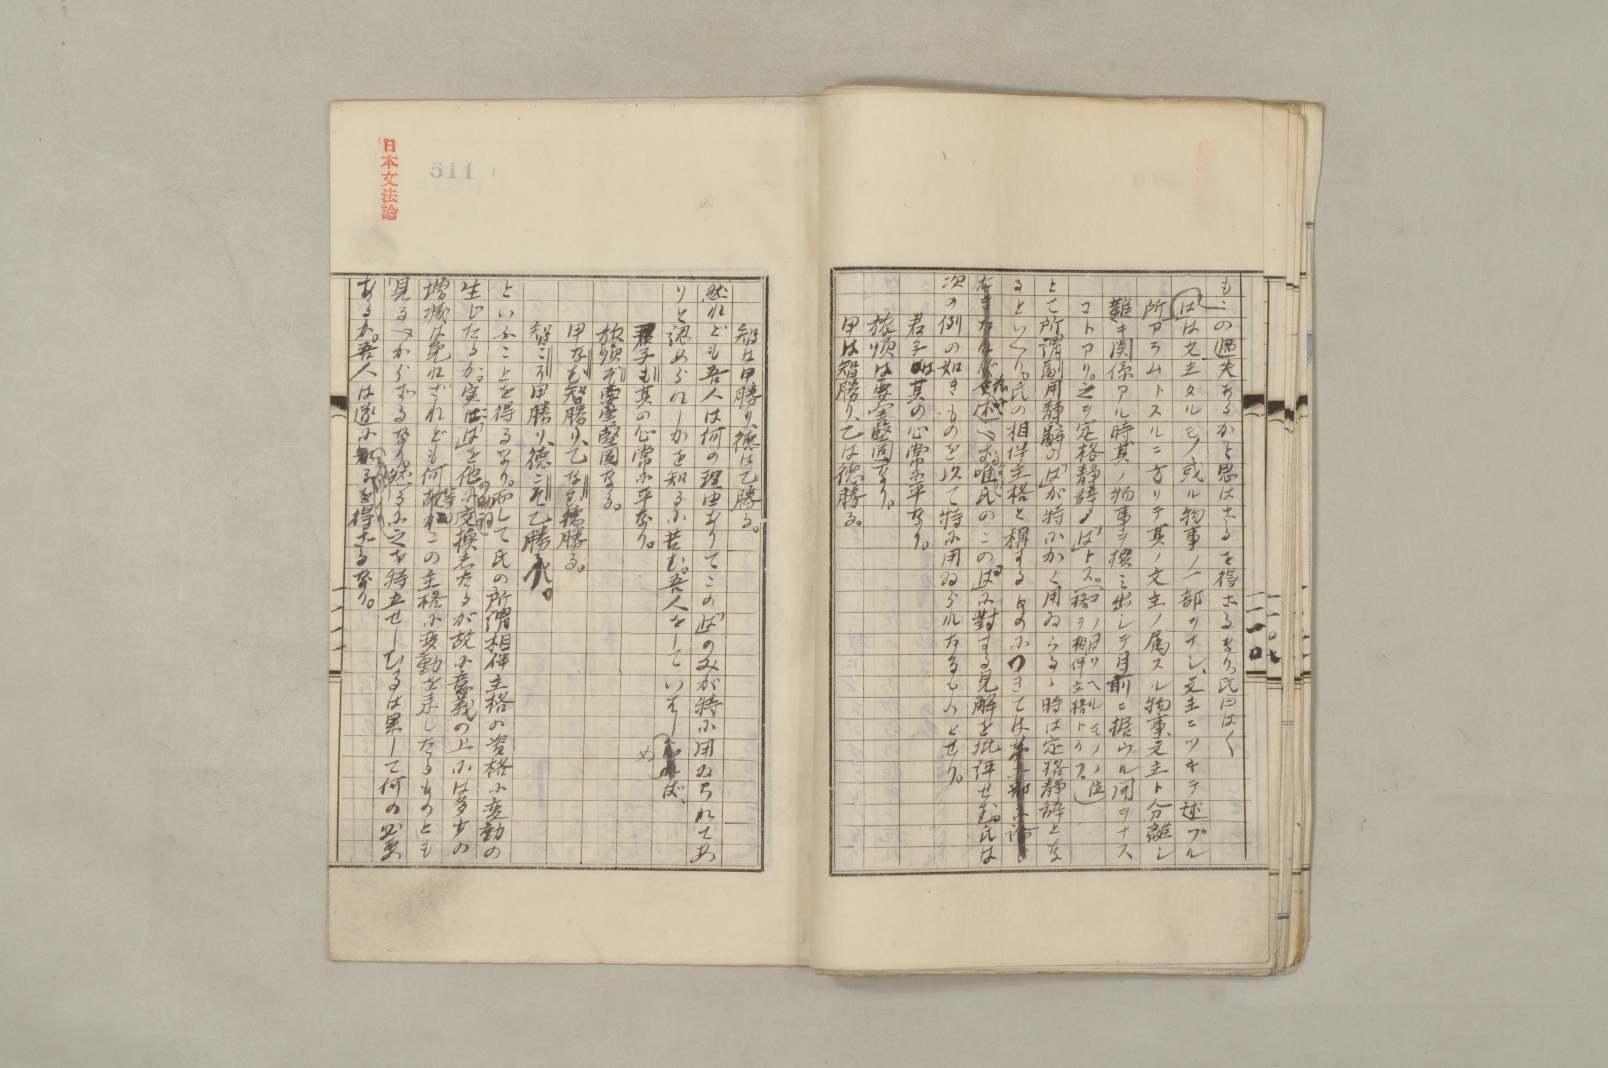 もこの過失あるかと思はざるを得ざるなり。氏曰はく
はは文主タルモノ或ル物事ノ一部ヲナシ、元主ニツキテ述ブル
所アラムトスルニ方リテ其ノ文主ノ属スル物事元主ト分離シ
難キ関係アル時其ノ物事ヲ撰ミ出シテ目前ニ据ウル用ヲナス
コトアリ。之ヲ定格静辞ノ「は」トス。
とて所謂副用静辞の「は」が特にかく用ゐらるゝ時は定格静辞となる
るといへり。氏の相伴主格と称するものにつきては
唯氏のこの「は」に対する見解を批評せむ。氏は
次の例の如きものを以て特に用ゐられたるものとせり。
君子は其の心常に平なり。
旅順は要塞堅固なり。
甲は智勝り、乙は徳勝る。
日本文法論
511
智は甲勝り、徳は乙勝る。
然れども吾人は何の理由ありてこの「は」のみが特に用ゐられてあ
りと認めらるゝかを知るに苦む。吾人をしていはしめば、
君子も其の心常に平なり。
旅順ぞ要塞堅固なる。
甲なむ智勝り、乙なむ徳勝る。
智こそ甲勝り、徳こそ乙勝れ。
といふことを得るなり。而して氏の所謂相伴主格の資格に変動の
生じたるか。実に「は」を他の助詞に交換したるが故に意義の上には多少の
増減は免れざれども何等この主格に変動を来したるものとも
見るべからざるなり。然るに之を特立せしむるは果して何の必要
あるか。吾人は遂に知るを得ざるなり。